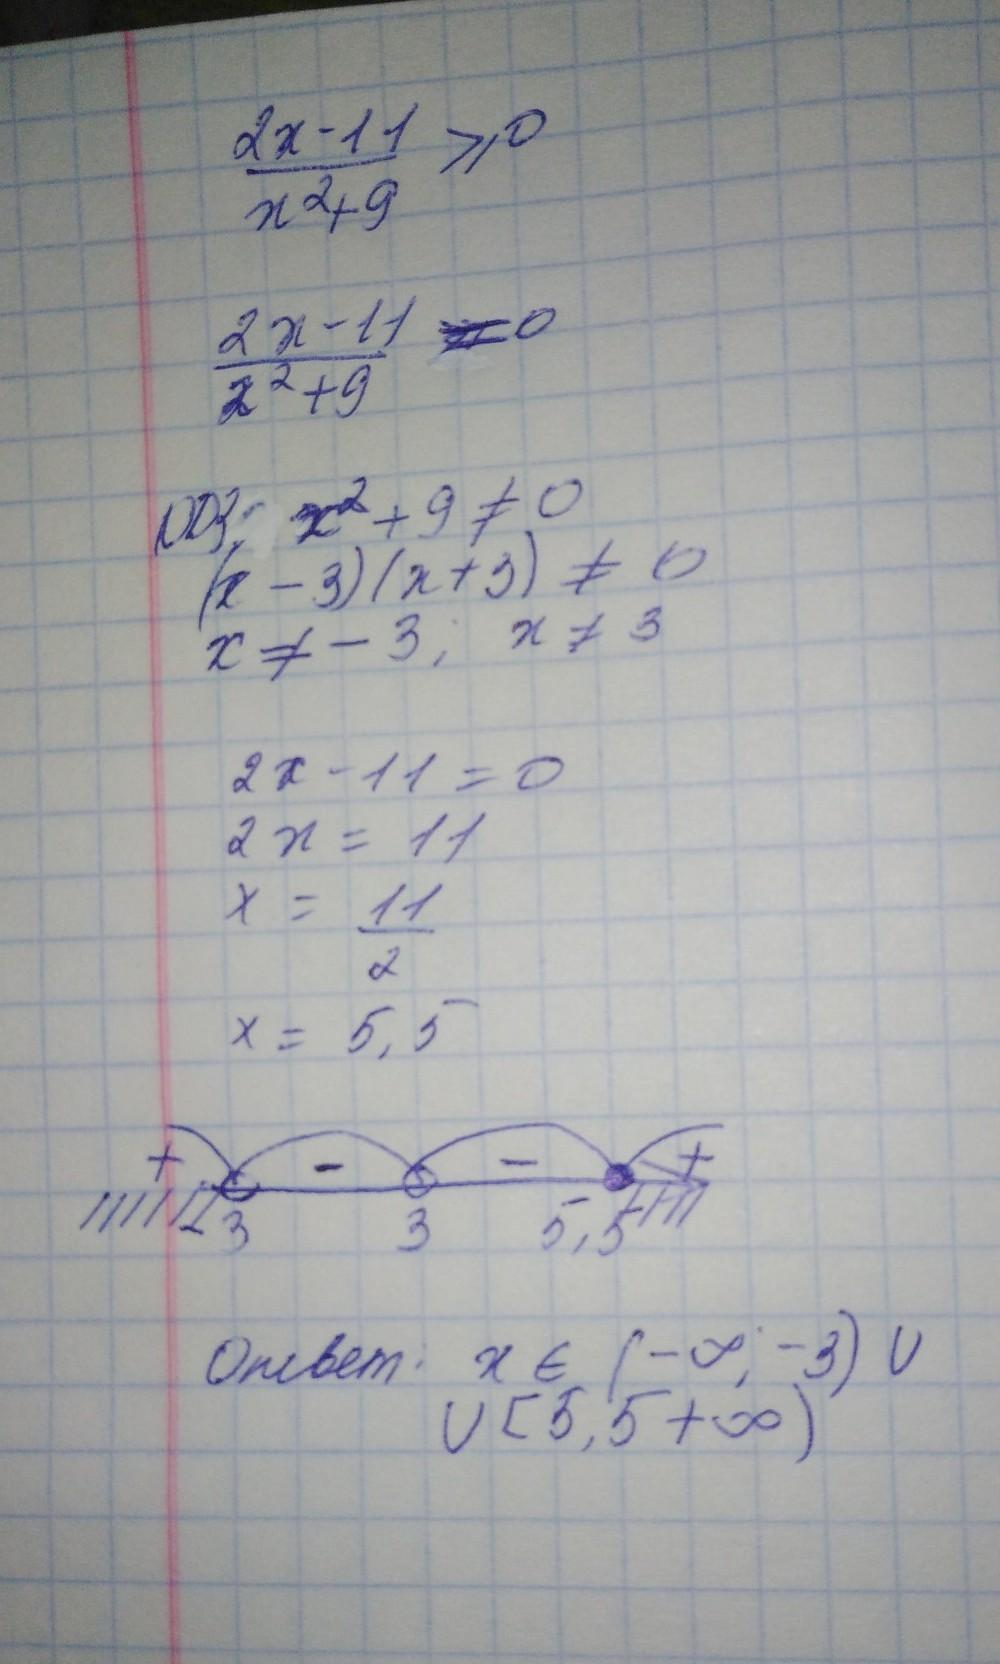 2x-11/x²+9 ⩾ 0
2x-11/x²+9 = 0
ОДЗ: x²+9 ≠ 0
(x-3)(x+3) ≠ 0
x ≠ -3; x ≠ 3
2x-11 = 0
2x = 11
x = 11/2
x = 5,5
+ - - +
-3 3 5,5
Ответ: x ∈ (-∞; -3) ∪
∪ [5,5 +∞)